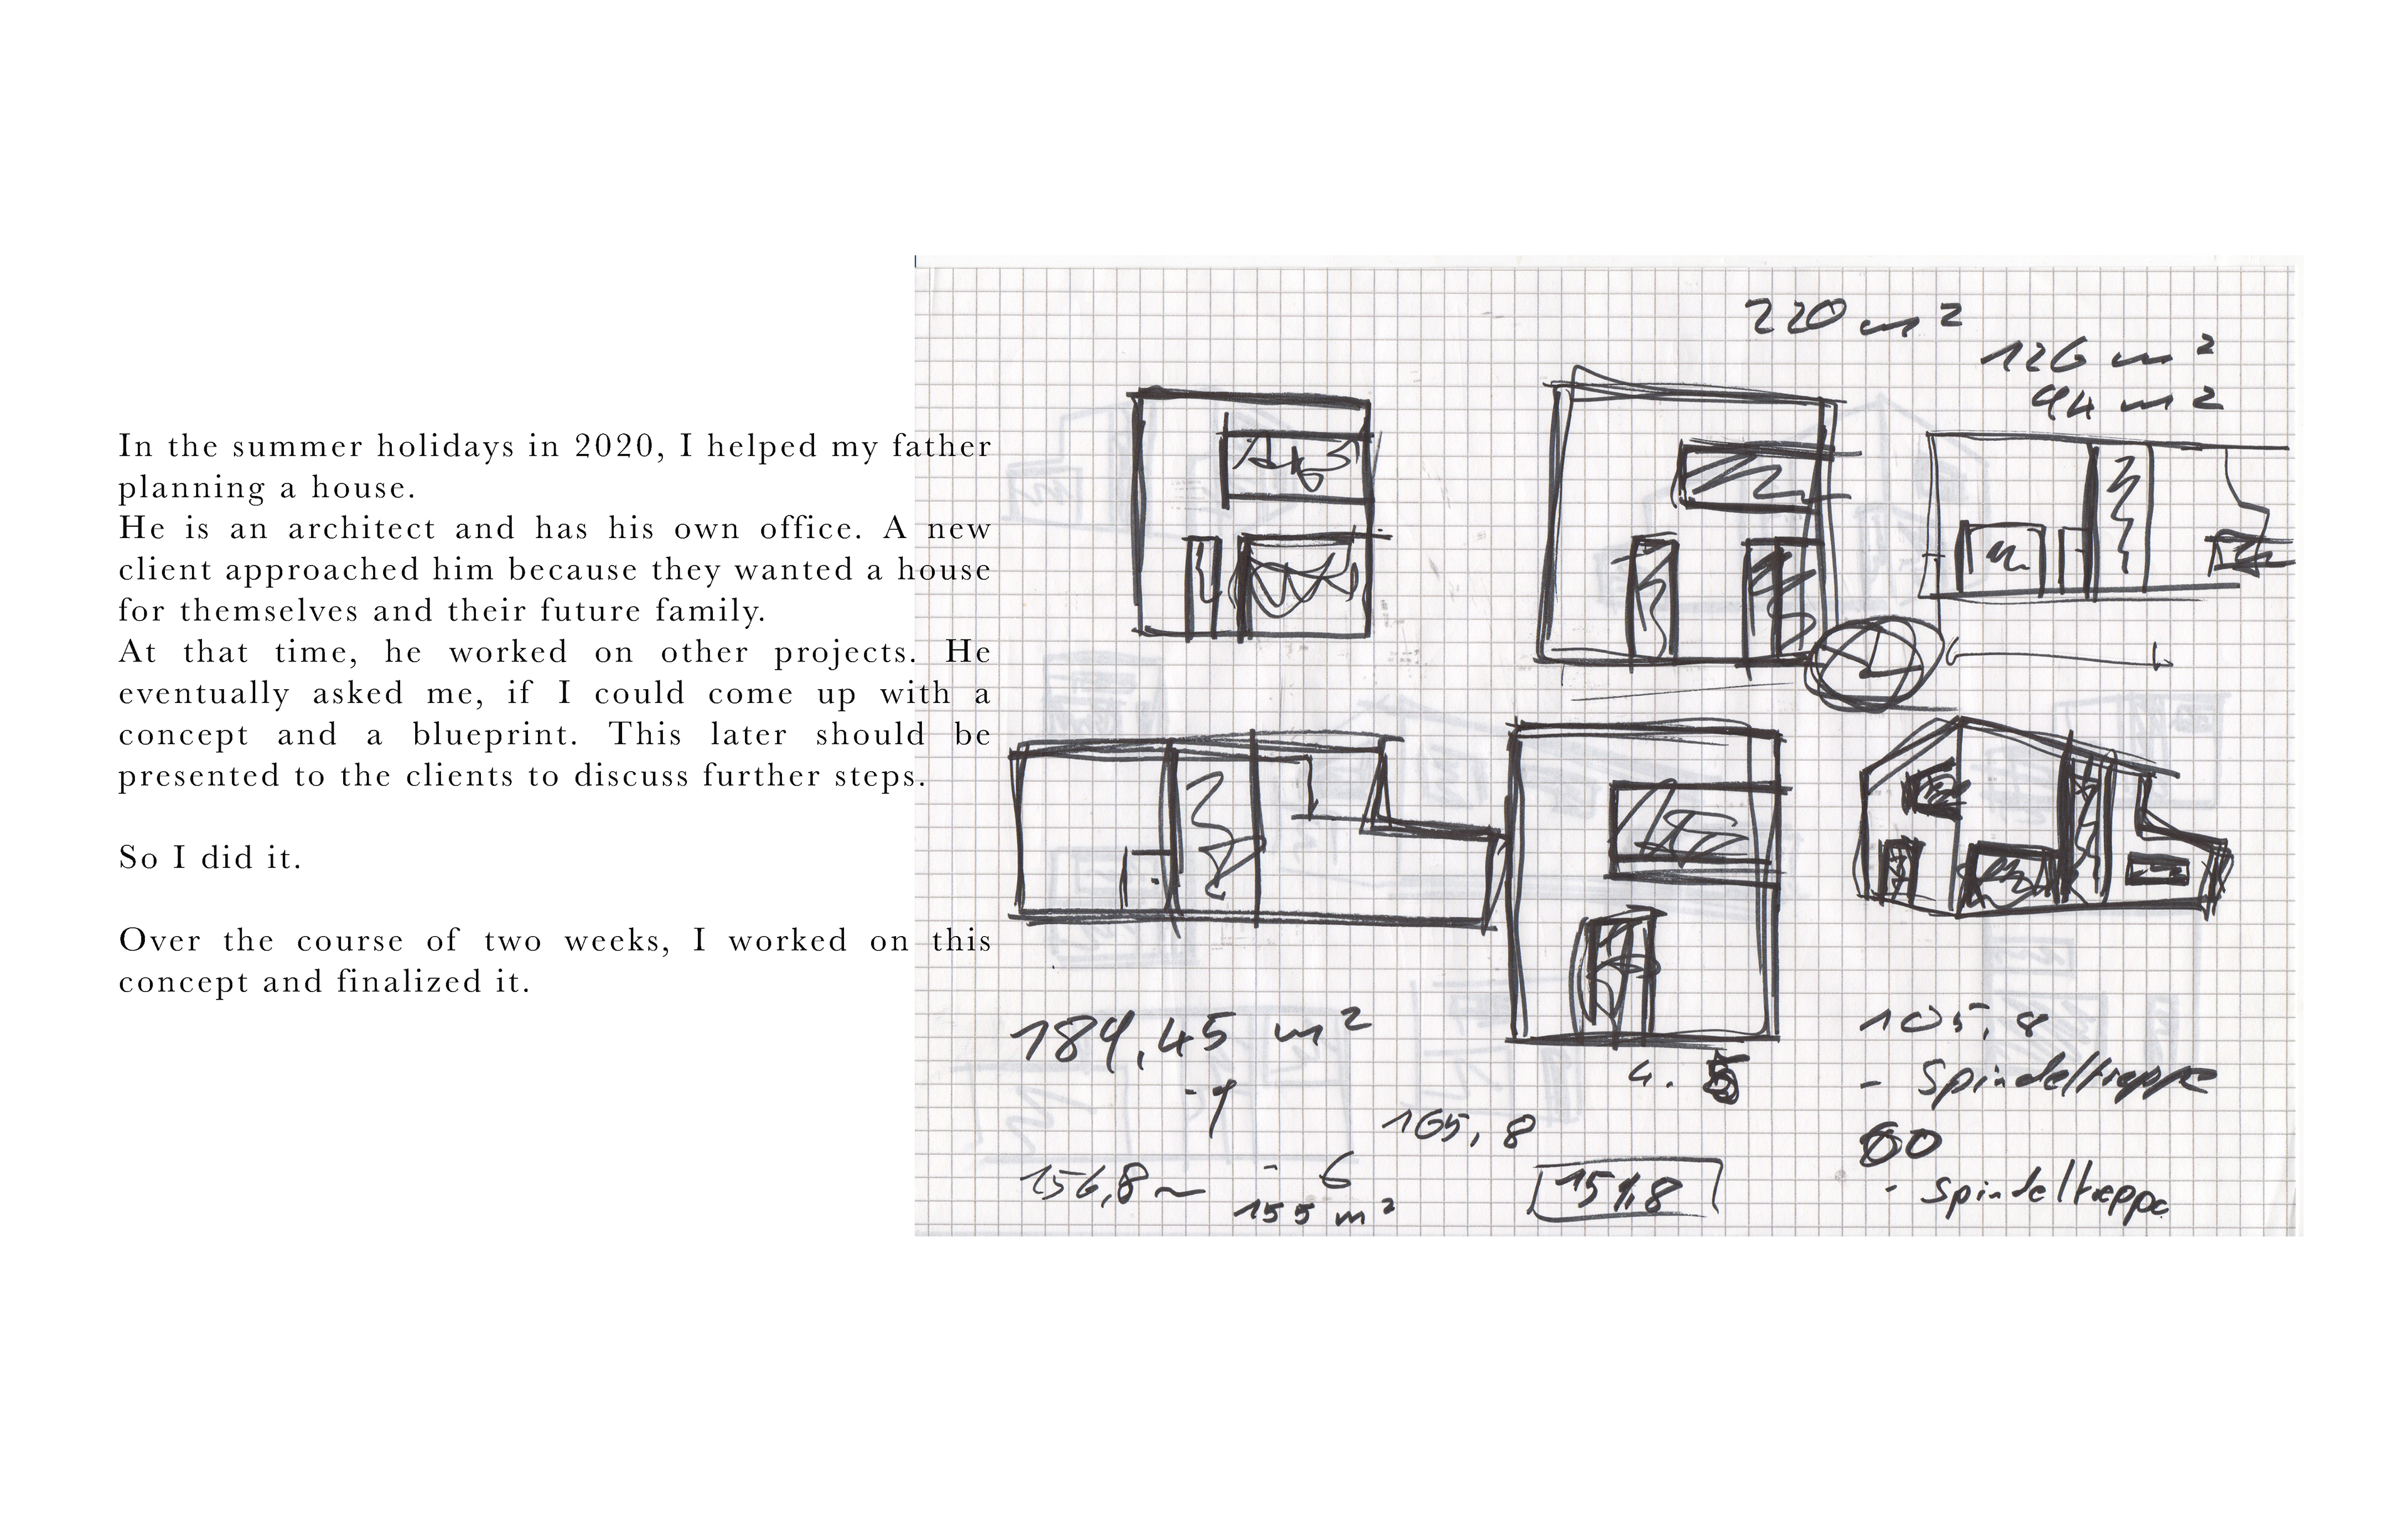 In the summer holidays in 2020, I helped my father
planning a house.
He is an architect and has his own office. A new
client approached him because they wanted a house
for themselves and their future family.
At that time, he worked on other projects. He
eventually asked me, if I could come up with a
concept and a blueprint. This later should be
presented to the clients to discuss further steps.
So I did it.
Over the course of two weeks, I worked on this
concept and finalized it.
220 m²
126 m²
94 m²
184,45 m²
156,8
- 6
155 m²
4.
105,8
- Spindeltreppe
60
- Spindeltreppe